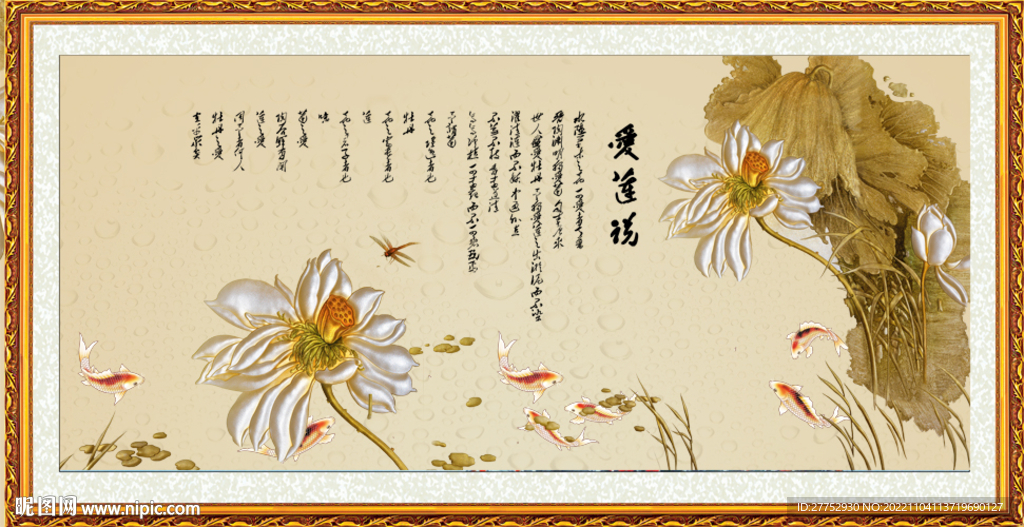 愛蓮説
水陸草木之花 可愛者甚蕃
晉陶淵明獨愛菊 自李唐來
世人甚愛牡丹 予獨愛蓮之出淤泥而不染
濯清漣而不妖 中通外直
不蔓不枝 香遠益清
亭亭净植 可遠觀而不可褻玩焉
予謂菊
花之隱逸者也
牡丹
花之富貴者也
蓮
花之君子者也
噫
菊之愛
陶后鮮有聞
蓮之愛
同予者何人
牡丹之愛
宜乎衆矣
昵图网 www.nipic.com
ID:27752930 NO:20221104113719690127